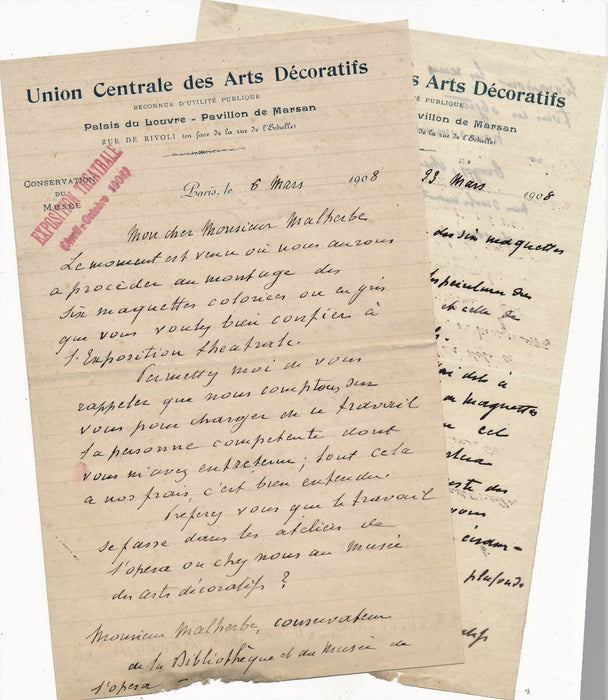 Union Centrale des Arts Décoratifs
RECONNUE D'UTILITÉ PUBLIQUE
Palais du Louvre - Pavillon de Marsan
RUE DE RIVOLI (en face de la rue de l'Echelle)
CONSERVATION
DU
MUSÉE
EXPOSITION THÉATRALE
(Avril-Octobre 1908)
Paris, le 6 Mars 1908
Mon cher Monsieur Malherbe
Le moment est venu où nous aurons
a procéder au montage des
six maquettes coloriées ou en gris
que vous voulez bien confier à
l'Exposition theatrale.
Permettez moi de vous
rappeler que nous comptons sur
vous pour charger de ce travail
la personne competente dont
vous m'avez entretenu; tout cela
a nos frais, c'est bien entendu.
Preferez vous que le travail
se fasse dans les ateliers de
l'opera ou chez nous au Musée
des arts décoratifs ?
Monsieur Malherbe, conservateur
de la Bibliothèque et du Musée de
l'opera
s Arts Décoratifs
PUBLIQUE
villon de Marsan
de la rue de l'Echelle)
23 Mars 1908
des six maquettes
et celle de
à
maquettes
cet
des
vous
plafonds